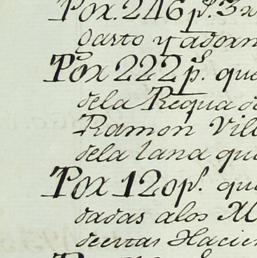 Por. 246 p.s 3 r
Gasto y adorn
Por 222 p.s que
dela Requa de
Ramon Vill
dela lana qu
Por 120 p.s que
dadas alos M
destas Hacien